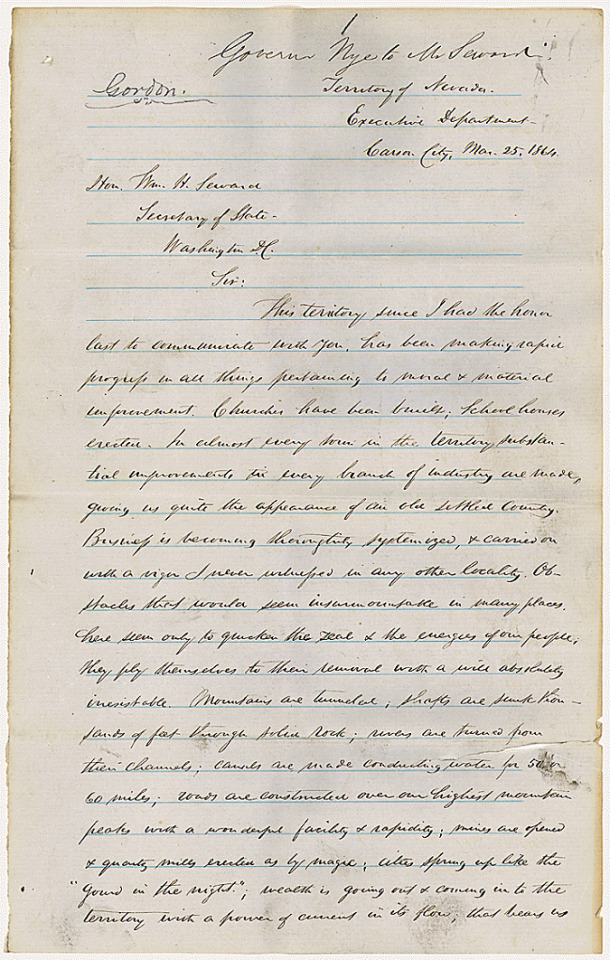 1
Governor Nye to Mr Seward.
Gordon.
Territory of Nevada.
Executive Department-
Carson City, Mar. 25, 1864.
Hon. Wm. H. Seward
Secretary of State-
Washington D.C.
Sir:
This territory since I had the honor
last to communicate with you, has been making rapid
progress in all things pertaining to moral & material
improvement. Churches have been built; School houses
erected. In almost every town in the territory substan-
tial improvements in every branch of industry are made,
giving us quite the appearance of an old settled country.
Business is becoming thoroughly systemized, & carried on
with a vigor I never witnessed in any other locality. Ob-
stacles that would seem insurmountable in many places,
here seem only to quicken the zeal & the energies of our people;
they ply themselves to their removal with a will absolutely
irresistable. Mountains are tunneled; shafts are sunk thou-
sands of feet through solid rock; rivers are turned from
their channels; canals are made conducting water for 50 or
60 miles; roads are constructed over our highest mountain
peaks with a wonderful facility & rapidity; mines are opened
& quartz mills erected as by magic; cities spring up like the
"Gourd in the night."; wealth is going out & coming in to the
territory with a power of current in its flow, that bears us